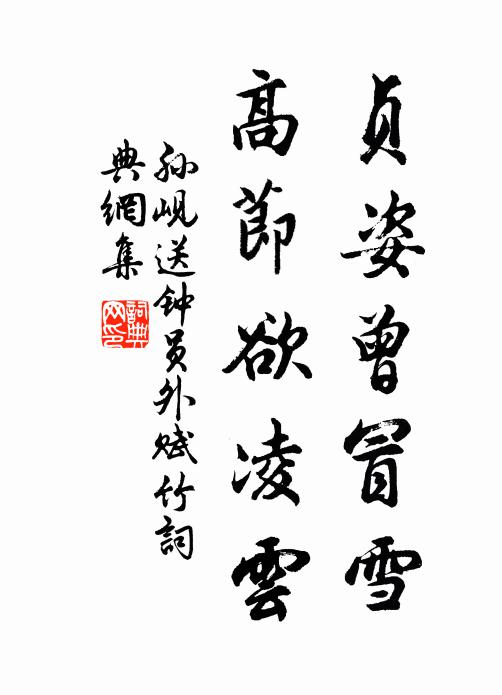 贞姿曾冒雪
高節欲凌雲
孙岘送钟员外赋竹詞
典網集
詞典网印